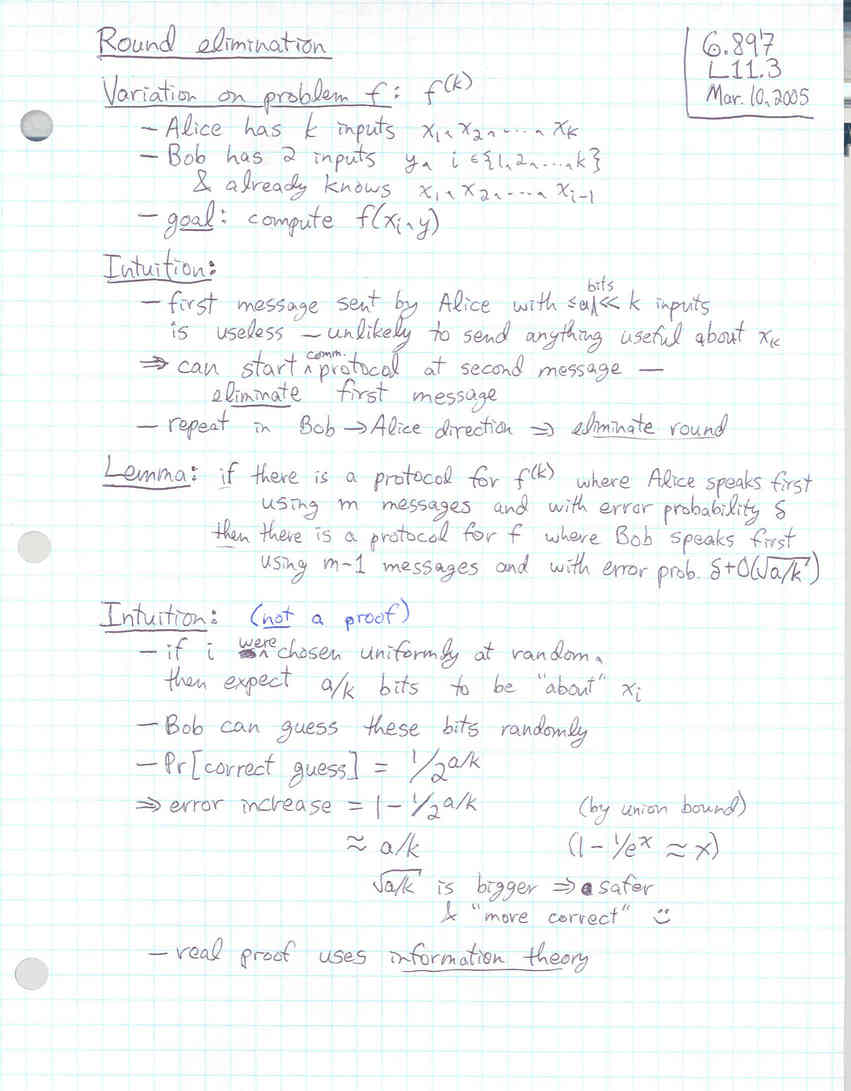 Round elimination
6.897
L11.3
Mar. 10, 2005
Variation on problem f: f^(k)
- Alice has k inputs x₁, x₂, ..., xₖ
- Bob has 2 inputs y, i ∈ {1, 2, ..., k}
& already knows x₁, x₂, ..., xᵢ₋₁
- goal: compute f(xᵢ, y)
Intuition:
- first message sent by Alice with ≤ a ≪ k inputs
bits
is useless – unlikely to send anything useful about xₖ
⇒ can start comm. protocol at second message –
eliminate first message
- repeat in Bob → Alice direction ⇒ eliminate round
Lemma: if there is a protocol for f^(k) where Alice speaks first
using m messages and with error probability δ
then there is a protocol for f where Bob speaks first
using m-1 messages and with error prob. δ+O(√a/k)
Intuition: (not a proof)
- if i were chosen uniformly at random,
then expect a/k bits to be "about" xᵢ
- Bob can guess these bits randomly
- Pr[correct guess] = 1/2^a/k
⇒ error increase = 1 - 1/2^a/k (by union bound)
≈ a/k (1 - 1/e^x ≈ x)
√a/k is bigger ⇒ safer
& "more correct" ☺
- real proof uses information theory